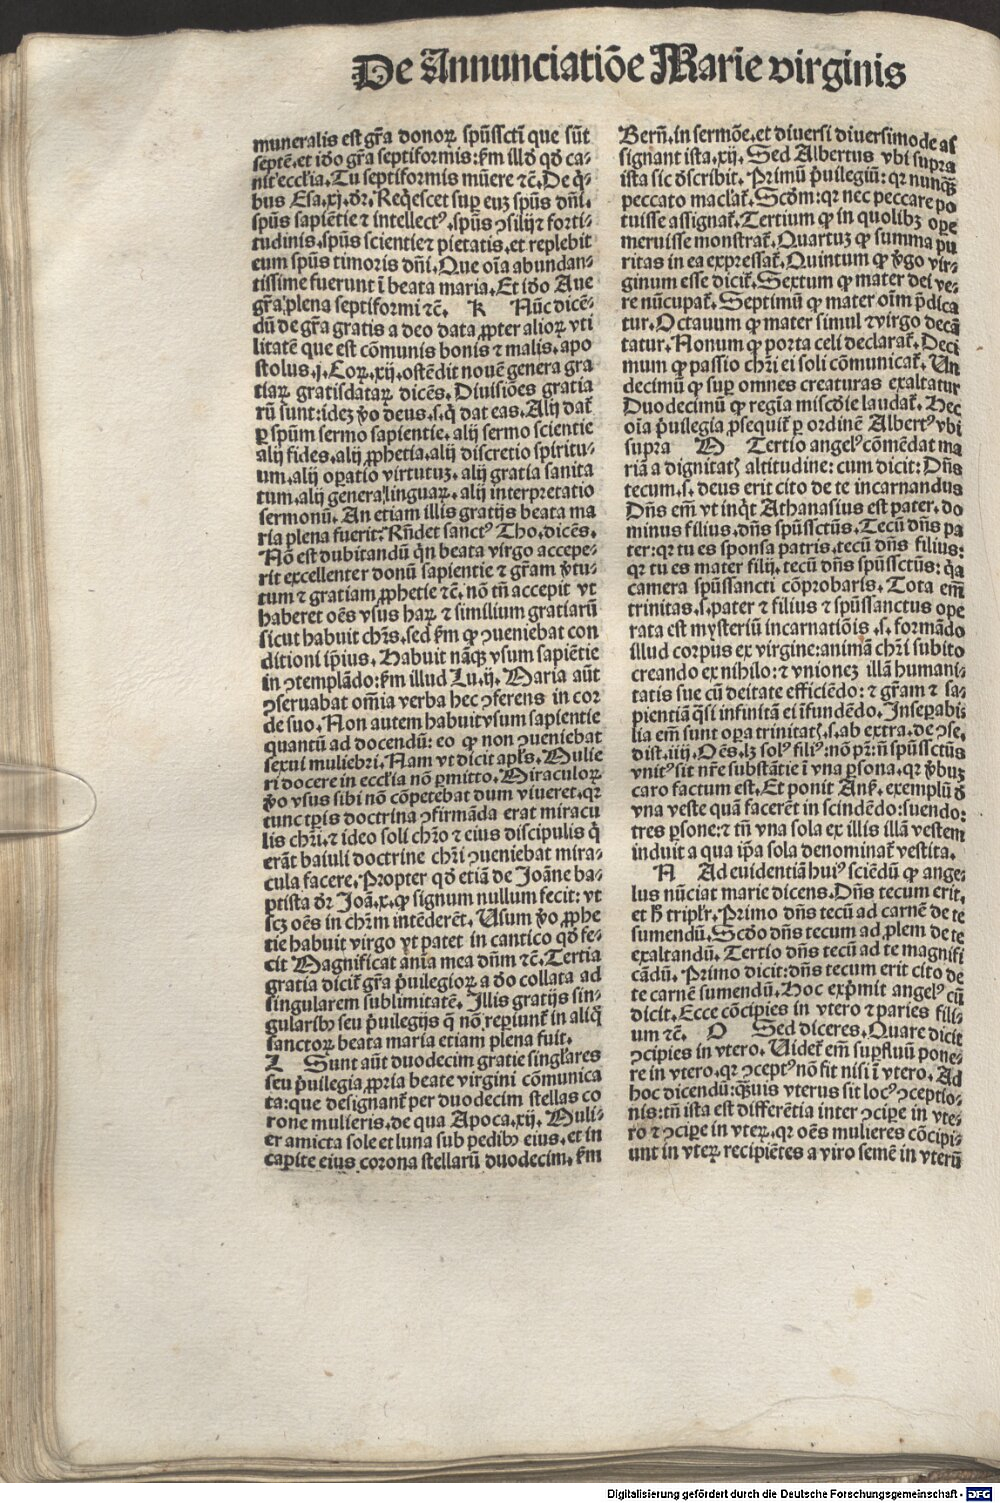 De Annunciatiōe Marie virginis
muneralis est gr̄a donoꝝ spūssctī que sūt
septē.et iō gr̄a septiformis:ẜm illḋ qḋ ca-
nit eccl̄ia.Tu septiformis mūere ⁊c̄.De q̇-
bus Esa.xj.dr̄.Reqescet suꝑ euʒ spūs dn̄i.
spūs sapiētie ⁊ intellectꝰ.spūs ꝯsilij ⁊ forti-
tudinis.spūs scientie ⁊ pietatis.et replebit
eum spūs timoris dn̄i.Que oīa abundan-
tissime fuerunt ī beata maria.Et iḋo Aue
gr̄a plena septiformi ⁊c̄. K Nūc dicē-
dū de gr̄a gratis a deo data ꝓpter alioꝝ vti
litatē que est cōmunis bonis ⁊ malis.apo
stolus.j.Coꝝ.xij.ostēdit nouē genera gra
tiaꝝ gratisdataꝝ dicēs.Diuisiōes gratia
rū sunt:ideʒ v̄o deus.s.q̇ dat eas.Alij dat̄
ꝑ spūm sermo sapientie.alij sermo scientie
alij fides.alij ꝓphetia.alij discretio spiritu-
um.alij oꝑatio virtutuʒ.alij gratia sanita
tum.alij genera linguaꝝ.alij interpretatio
sermonū.An etiam illis gratijs beata ma
ria plena fuerit:Rn̄det sanctꝰ Tho.dicēs.
Nō est dubitandū qn̄ beata virgo accepe-
rit excellenter donū sapientie ⁊ gr̄am v̄tu-
tum ⁊ gratiam ꝓphetie ⁊c̄.nō tn̄ accepit vt
haberet oēs vsus haꝝ ⁊ similium gratiarū
sicut habuit chr̄s.sed ẜm ꝙ ꝯueniebat con
ditioni ip̄ius.Habuit nāqʒ vsum sapiētie
in ꝯtemplādo:ẜm illud Lu.ij.Maria aūt
ꝯseruabat om̄ia verba hec ꝯferens in cor
de suo.Non autem habuit vsum sapientie
quantū ad docendū: eo ꝙ non ꝯueniebat
sexui muliebri.Nam vt dicit apl̄s.Mulie
ri docere in eccl̄ia nō ꝑmitto.Miraculoꝝ
v̄o vsus sibi nō cōpetebat dum viueret.qꝛ
tunc tꝑis doctrina ꝯfirmāda erat miracu
lis chr̄i.⁊ ideo soli chr̄o ⁊ eius discipulis q̇
erāt baiuli doctrine chr̄i ꝯueniebat mira-
cula facere.Propter qḋ etiā de Joāne ba-
ptista dr̄ Joā.x.ꝙ signum nullum fecit: vt
scʒ oēs in chr̄m intēderēt.Usum v̄o ꝓphe
tie habuit virgo vt patet in cantico qḋ fe-
cit Magnificat aīa mea dn̄m ⁊c̄.Tertia
gratia dicit̄ gr̄a p̄uilegioꝝ a ḋo collata ad
singularem sublimitatē. Illis gratijs sin-
gularibꝰ seu p̄uilegijs q̄ nō reꝑiunt̄ in aliq̇
sanctoꝝ beata maria etiam plena fuit.
L Sunt aūt duodecim gratie singl̄ares
seu p̄uilegia ꝓpria beate virgini cōmunica
ta:que designant̄ per duodecim stellas co
rone mulieris.de qua Apoca.xij.Muli-
er amicta sole et luna sub pedibꝰ eius.et in
capite eius corona stellarū duodecim.ẜm
Bern̄.in sermōe.et diuersi diuersimode as
signant ista.xij.Sed Albertus vbi supra
ista sic ḋscribit.Primū p̄uilegiū: qꝛ nunqꝫ
peccato maclat̄.Scḋm:qꝛ nec peccare po
tuisse assignat̄.Tertium ꝙ in quolibʒ oꝑe
meruisse monstrat̄.Quartuʒ ꝙ summa pu
ritas in ea expressat̄.Quintum ꝙ v̄go vir-
ginum esse dicit̄.Sextum ꝙ mater dei ve-
re nūcupat̄.Septimū ꝙ mater oīm p̄dica
tur.Octauum ꝙ mater simul ⁊ virgo decā
tatur.Nonum ꝙ porta celi declarat̄.Deci
mum ꝙ passio chr̄i ei soli cōmunicat̄.Un
decimū ꝙ suꝑ omnes creaturas exaltatur
Duodecimū ꝙ regīa miscḋie laudat̄.Hec
oīa p̄uilegia ꝓsequit̄ ꝑ ordinē Albertꝰ vbi
supra M Tertio angelꝰ cōmēdat ma
riā a dignitatꝭ altitudine: cum dicit: Dn̄s
tecum.s.deus erit cito de te incarnandus
Dn̄s em̄ vt inqt Athanasius est pater.do
minus filius.dn̄s spūssctūs.Tecū dn̄s pa
ter:qꝛ tu es sponsa patris.tecū dn̄s filius:
qꝛ tu es mater filij.tecū dn̄s spūssctūs: q̇a
camera spūssancti cōprobaris.Tota em̄
trinitas.s.pater ⁊ filius ⁊ spūssanctus ope
rata est mysteriū incarnatiōis.s.formādo
illud corpus ex virgine:animā chr̄i subito
creando ex nihilo:⁊ vnioneʒ illā humani-
tatis sue cū deitate efficiēdo:⁊ gr̄am ⁊ sa-
pientiā qsi infinitā ei īfundēdo.Inseꝑabi-
lia em̄ sunt oꝑa trinitatꝭ.s.ab extra.de ꝯse.
dist.iiij.Oēs.lʒ solꝰ filiꝰ:nō pr̄:n̄ spūssctūs
vnitꝰ sit nr̄e substātie ī vna ꝑsona.qꝛ v̄buʒ
caro factum est.Et ponit Ans̄.exemplū ḋ
vna veste quā facerēt in scindēdo:suendo:
tres ꝑsone:⁊ tn̄ vna sola ex illis illā vestem
induit a qua ip̄a sola denominat̄ vestita.
N Ad euidentiā huiꝰ sciēdū ꝙ ange-
lus nūciat marie dicens.Dn̄s tecum erit.
et h̄ tripl̄r.Primo dn̄s tecū ad carnē de te
sumendū.Scḋo dn̄s tecum ad ꝓlem de te
exaltandū.Tertio dn̄s tecū ad te magnifi
cādū.Primo dicit:dn̄s tecum erit cito de
te carnē sumendū.Hoc exp̄mit angelꝰ cū
dicit.Ecce cōcipies in vtero ⁊ paries fili-
um ⁊c̄. O Sed diceres.Quare dicit
ꝯcipies in vtero.Uidet̄ em̄ suꝑfluū pone-
re in vtero.qꝛ ꝯceptꝰ nō fit nisi ī vtero.Ad
hoc dicendū:qꝫuis vterus sit locꝰ ꝯceptio-
nis:tn̄ ista est differētia inter ꝯciꝑe in vte-
ro ⁊ ꝯciꝑe in vteꝝ.qꝛ oēs mulieres cōcipi-
unt in vteꝝ recipiētes a viro semē in vterū
Digitalisierung gefördert durch die Deutsche Forschungsgemeinschaft - DFG